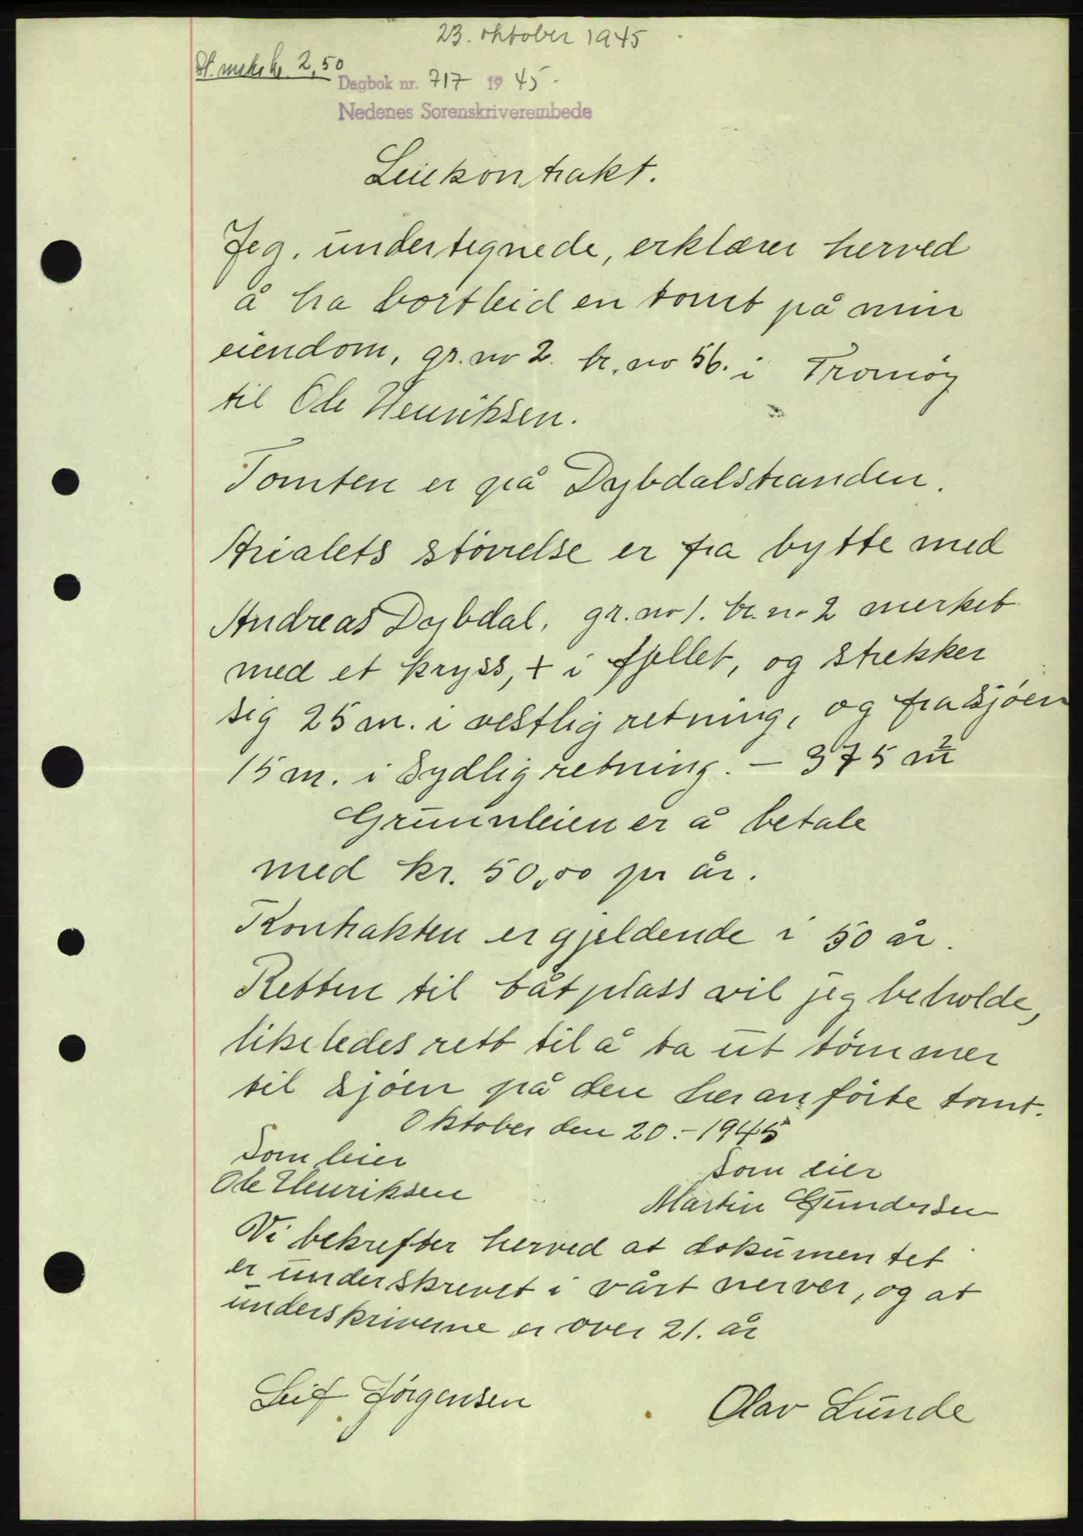 23. oktober 1945
St. merke kr. 2,50
Dagbok nr. 717 1945.
Nedenes Sorenskriverembede
Leiekontrakt.
Jeg, undertegnede, erklærer herved
å ha bortleid en tomt på min
eiendom, gr. no 2. br. no 56. i Tromøy
til Ole Henriksen.
Tomten er på Dybdalstranden.
Arialets störrelse er fra bytte med
Andreas Dybdal, gr. no 1. br. no 2 merket
med et kryss, + i fjellet, og strekker
sig 25 m. i vestlig retning, og fra sjöen
15 m. i Sydlig retning. – 375 m²
Grunnleien er å betale
med kr. 50,00 pr år.
Kontrakten er gjeldende i 50 år.
Retten til båtplass vil jeg beholde,
likeledes rett til å ta ut tömmer
til sjöen på den her anförte tomt.
Oktober den 20. – 1945
Som leier
Som eier
Ole Henriksen
Martin Gundersen
Vi bekrefter herved at dokumentet
er underskrevet i vårt nerver, og at
underskriverne er over 21. år
Leif Jörgensen
Olav Lunde